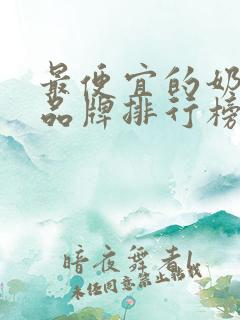 最便宜的奶
品牌排行榜
暗夜舞者l
未经同意禁止转载